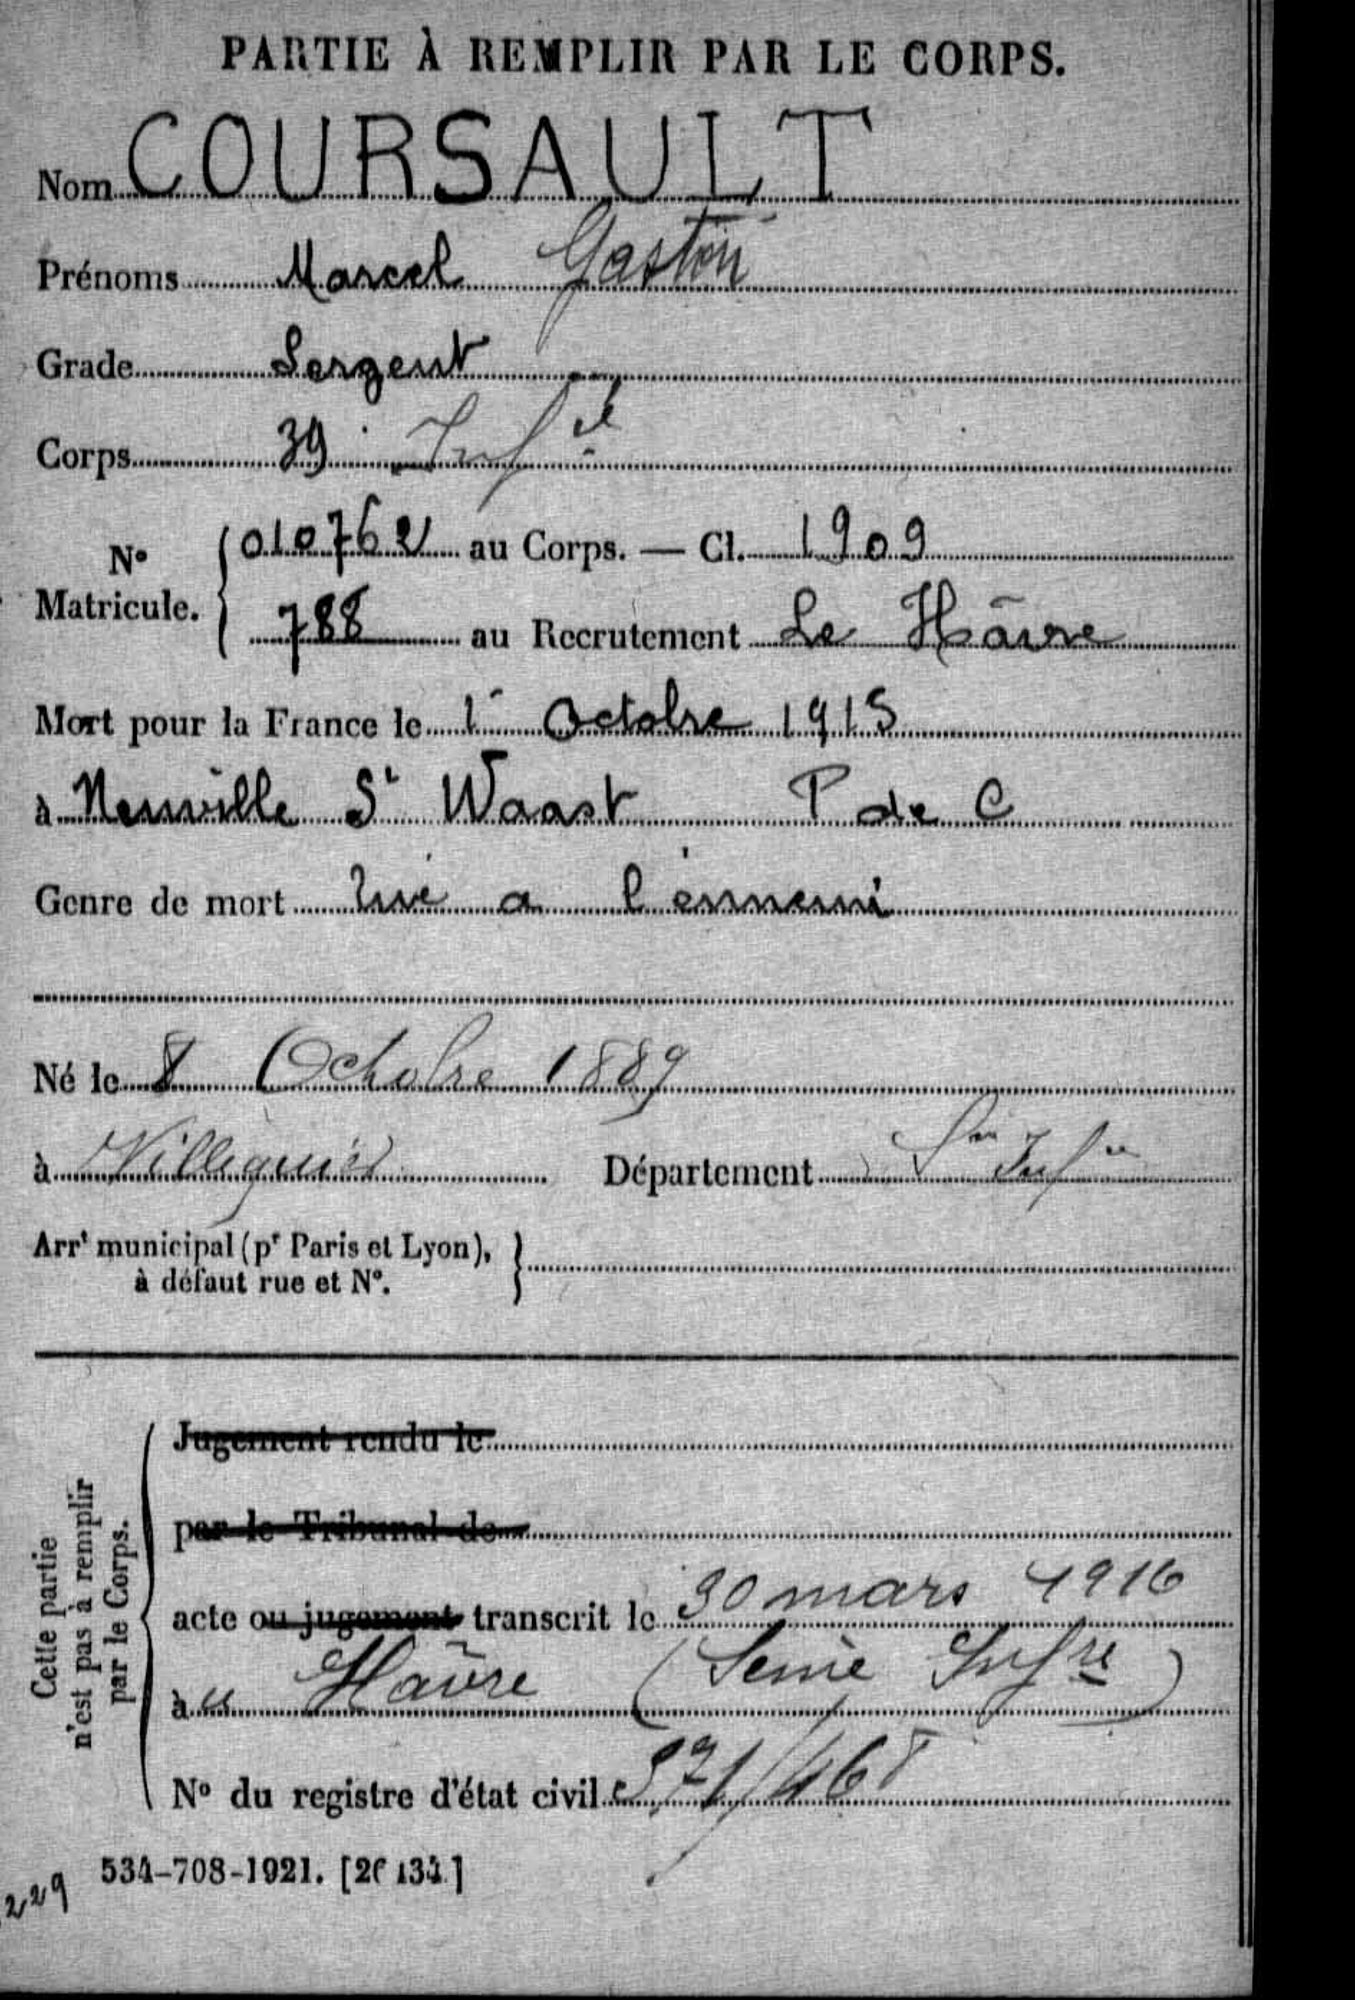 PARTIE À REMPLIR PAR LE CORPS.
Nom COURSAULT
Prénoms Marcel Gaston
Grade Sergent
Corps 39 Infie
N° Matricule. 010762 au Corps. — Cl. 1909
788 au Recrutement Le Hâvre
Mort pour la France le 1r Octobre 1915
à Neuville St Waast P de C
Genre de mort tué a l'ennemi
Né le 8 Octobre 1889
à Villequier Département Sne Infre
Arrt municipal (pr Paris et Lyon),
à défaut rue et N°.
Cette partie
n'est pas à remplir
par le Corps.
Jugement rendu le
par le Tribunal de
acte ou jugement transcrit le 30 mars 1916
à u Hâvre (Seine Infre)
N° du registre d'état civil
534-708-1921.
229